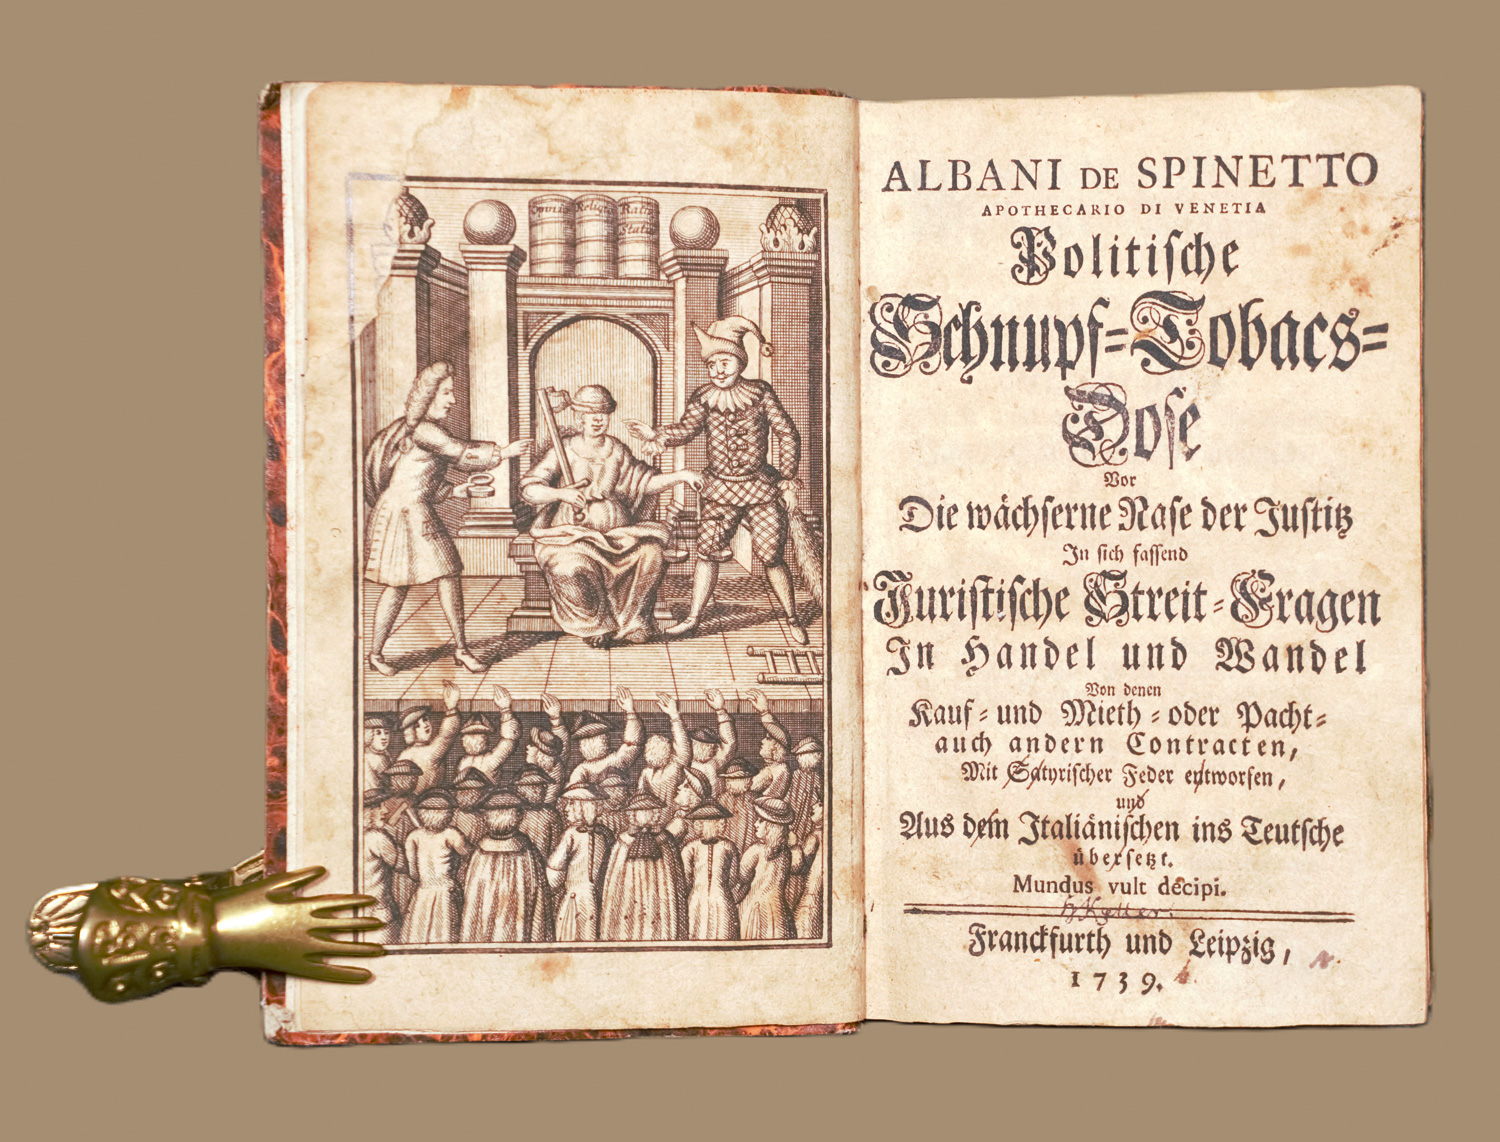 Opinio Religio Ratio
Status
ALBANI DE SPINETTO
APOTHECARIO DI VENETIA
Politiſche
Schnupf-Tobacs-
Doſe
Vor
Die wächſerne Naſe der Juſtitz
In ſich faſſend
Juriſtiſche Streit-Fragen
In Handel und Wandel
Von denen
Kauf- und Mieth- oder Pacht-
auch andern Contracten,
Mit Satyriſcher Feder entworfen,
und
Aus dem Italiäniſchen ins Teutſche
überſetzt.
Mundus vult decipi.
H. Keller.
Franckfurth und Leipzig,
1739.